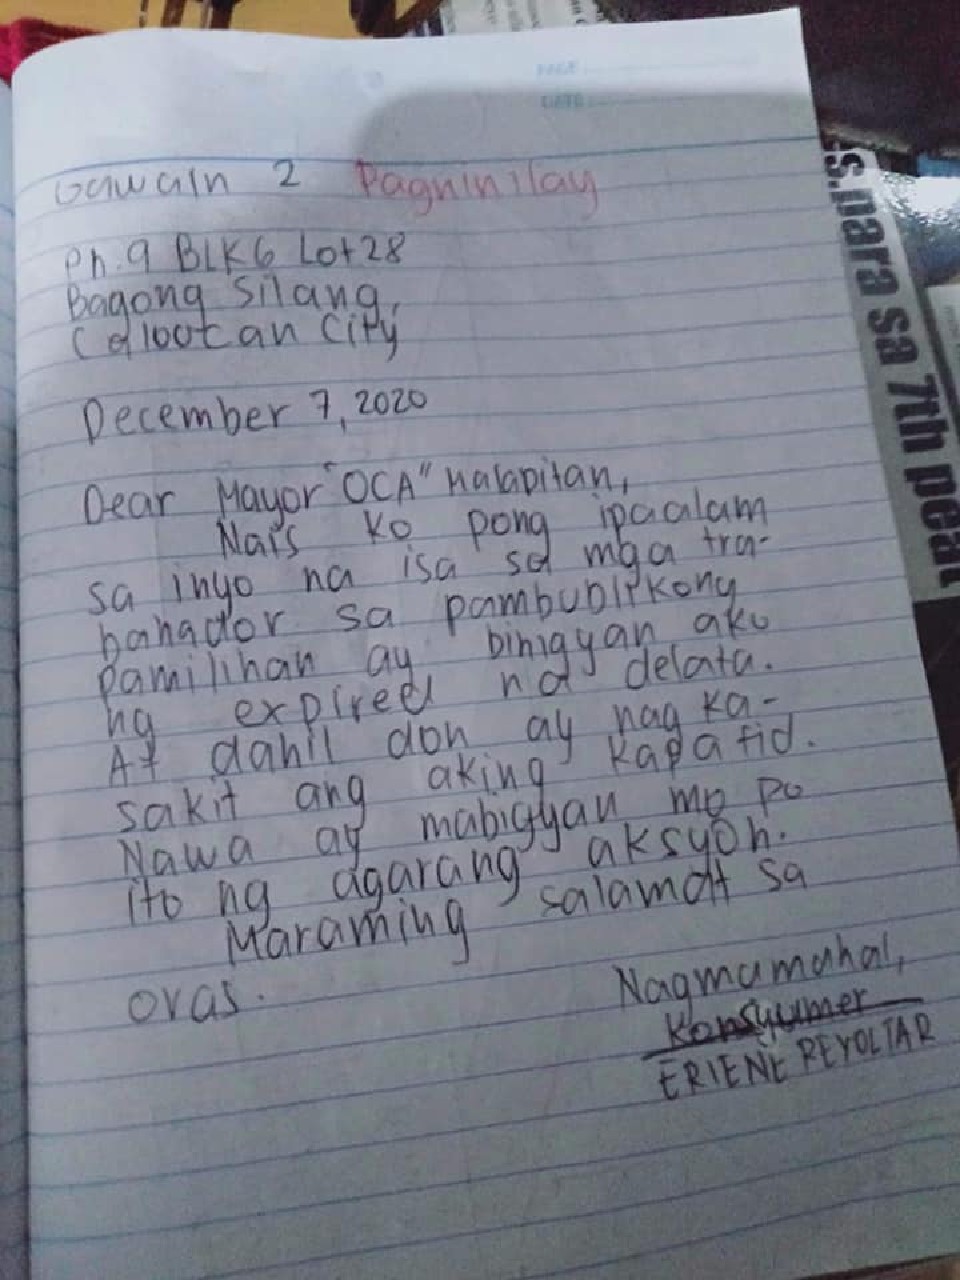 Gawain 2 Pagninilay
Ph.9 BLK6 Lot28
Bagong Silang,
Caloocan City
December 7, 2020
Dear Mayor "OCA" Malapitan,
Nais ko pong ipaalam
sa inyo na isa sa mga tra-
bahador sa pambublikong
pamilihan ay binigyan ako
ng expired na delata.
At dahil don ay nag ka-
sakit ang aking kapatid.
Nawa ay mabigyan mo po
ito ng agarang aksyon.
Maraming salamat sa
oras.
Nagmamahal,
Konsyumer
ERIENE REYOLTAR
s.para sa 7th peat